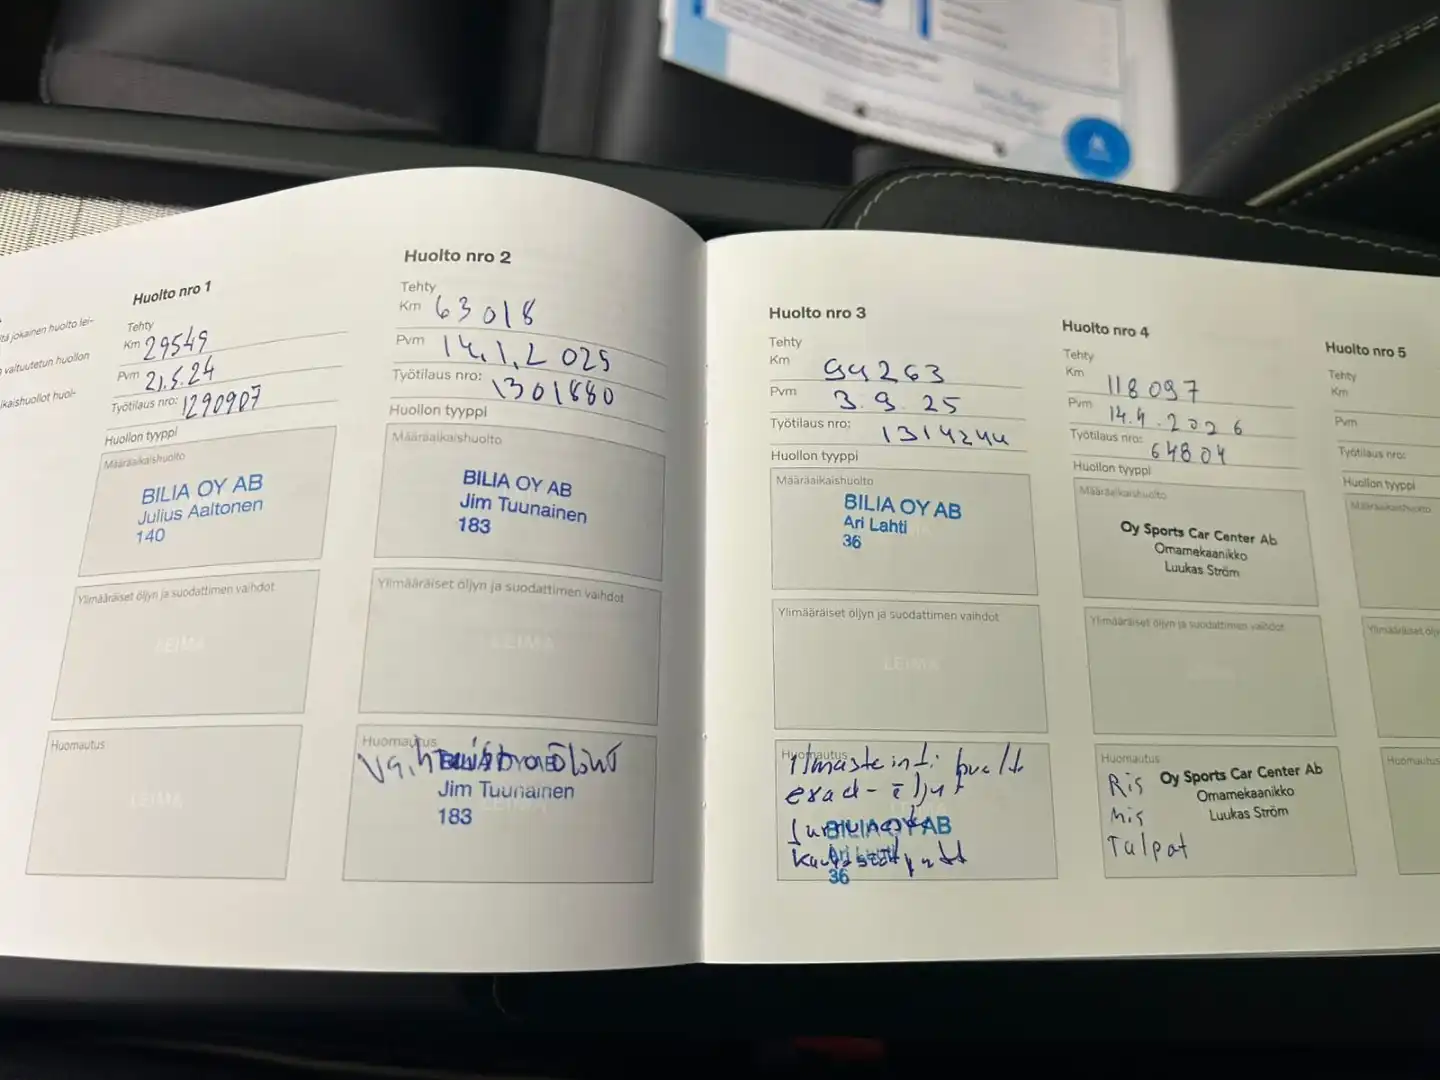 ltä jokainen huolto lei-
valtuutetun huollon
kaishuollot huol-
Huolto nro 1
Tehty
Km 29549
Pvm 21.5.24
Työtilaus nro: 1290907
Huollon tyyppi
Määräaikaishuolto
BILIA OY AB
Julius Aaltonen
140
Ylimääräiset öljyn ja suodattimen vaihdot
LEIMA
Huomautus
LEIMA
Huolto nro 2
Tehty
Km 63018
Pvm 14.1.2025
Työtilaus nro: 1301880
Huollon tyyppi
Määräaikaishuolto
BILIA OY AB
Jim Tuunainen
183
Ylimääräiset öljyn ja suodattimen vaihdot
LEIMA
Huomautus
BILIA OY AB
Jim Tuunainen
183
Huolto nro 3
Tehty
Km 99263
Pvm 3.9.25
Työtilaus nro: 1314244
Huollon tyyppi
Määräaikaishuolto
BILIA OY AB
Ari Lahti
36
Ylimääräiset öljyn ja suodattimen vaihdot
LEIMA
Huomautus
Ilmastointi
BILIA OY AB
Ari Lahti
36
Huolto nro 4
Tehty
Km 118097
Pvm 14.4.2026
Työtilaus nro: 64804
Huollon tyyppi
Määräaikaishuolto
Oy Sports Car Center Ab
Omamekaanikko
Luukas Ström
Ylimääräiset öljyn ja suodattimen vaihdot
Huomautus
Ris
his
Tulpat
Oy Sports Car Center Ab
Omamekaanikko
Luukas Ström
Huolto nro 5
Tehty
Km
Pvm
Työtilaus nro:
Huollon tyyppi
Määräaikaishuolto
Ylimääräiset öljy
Huomautus